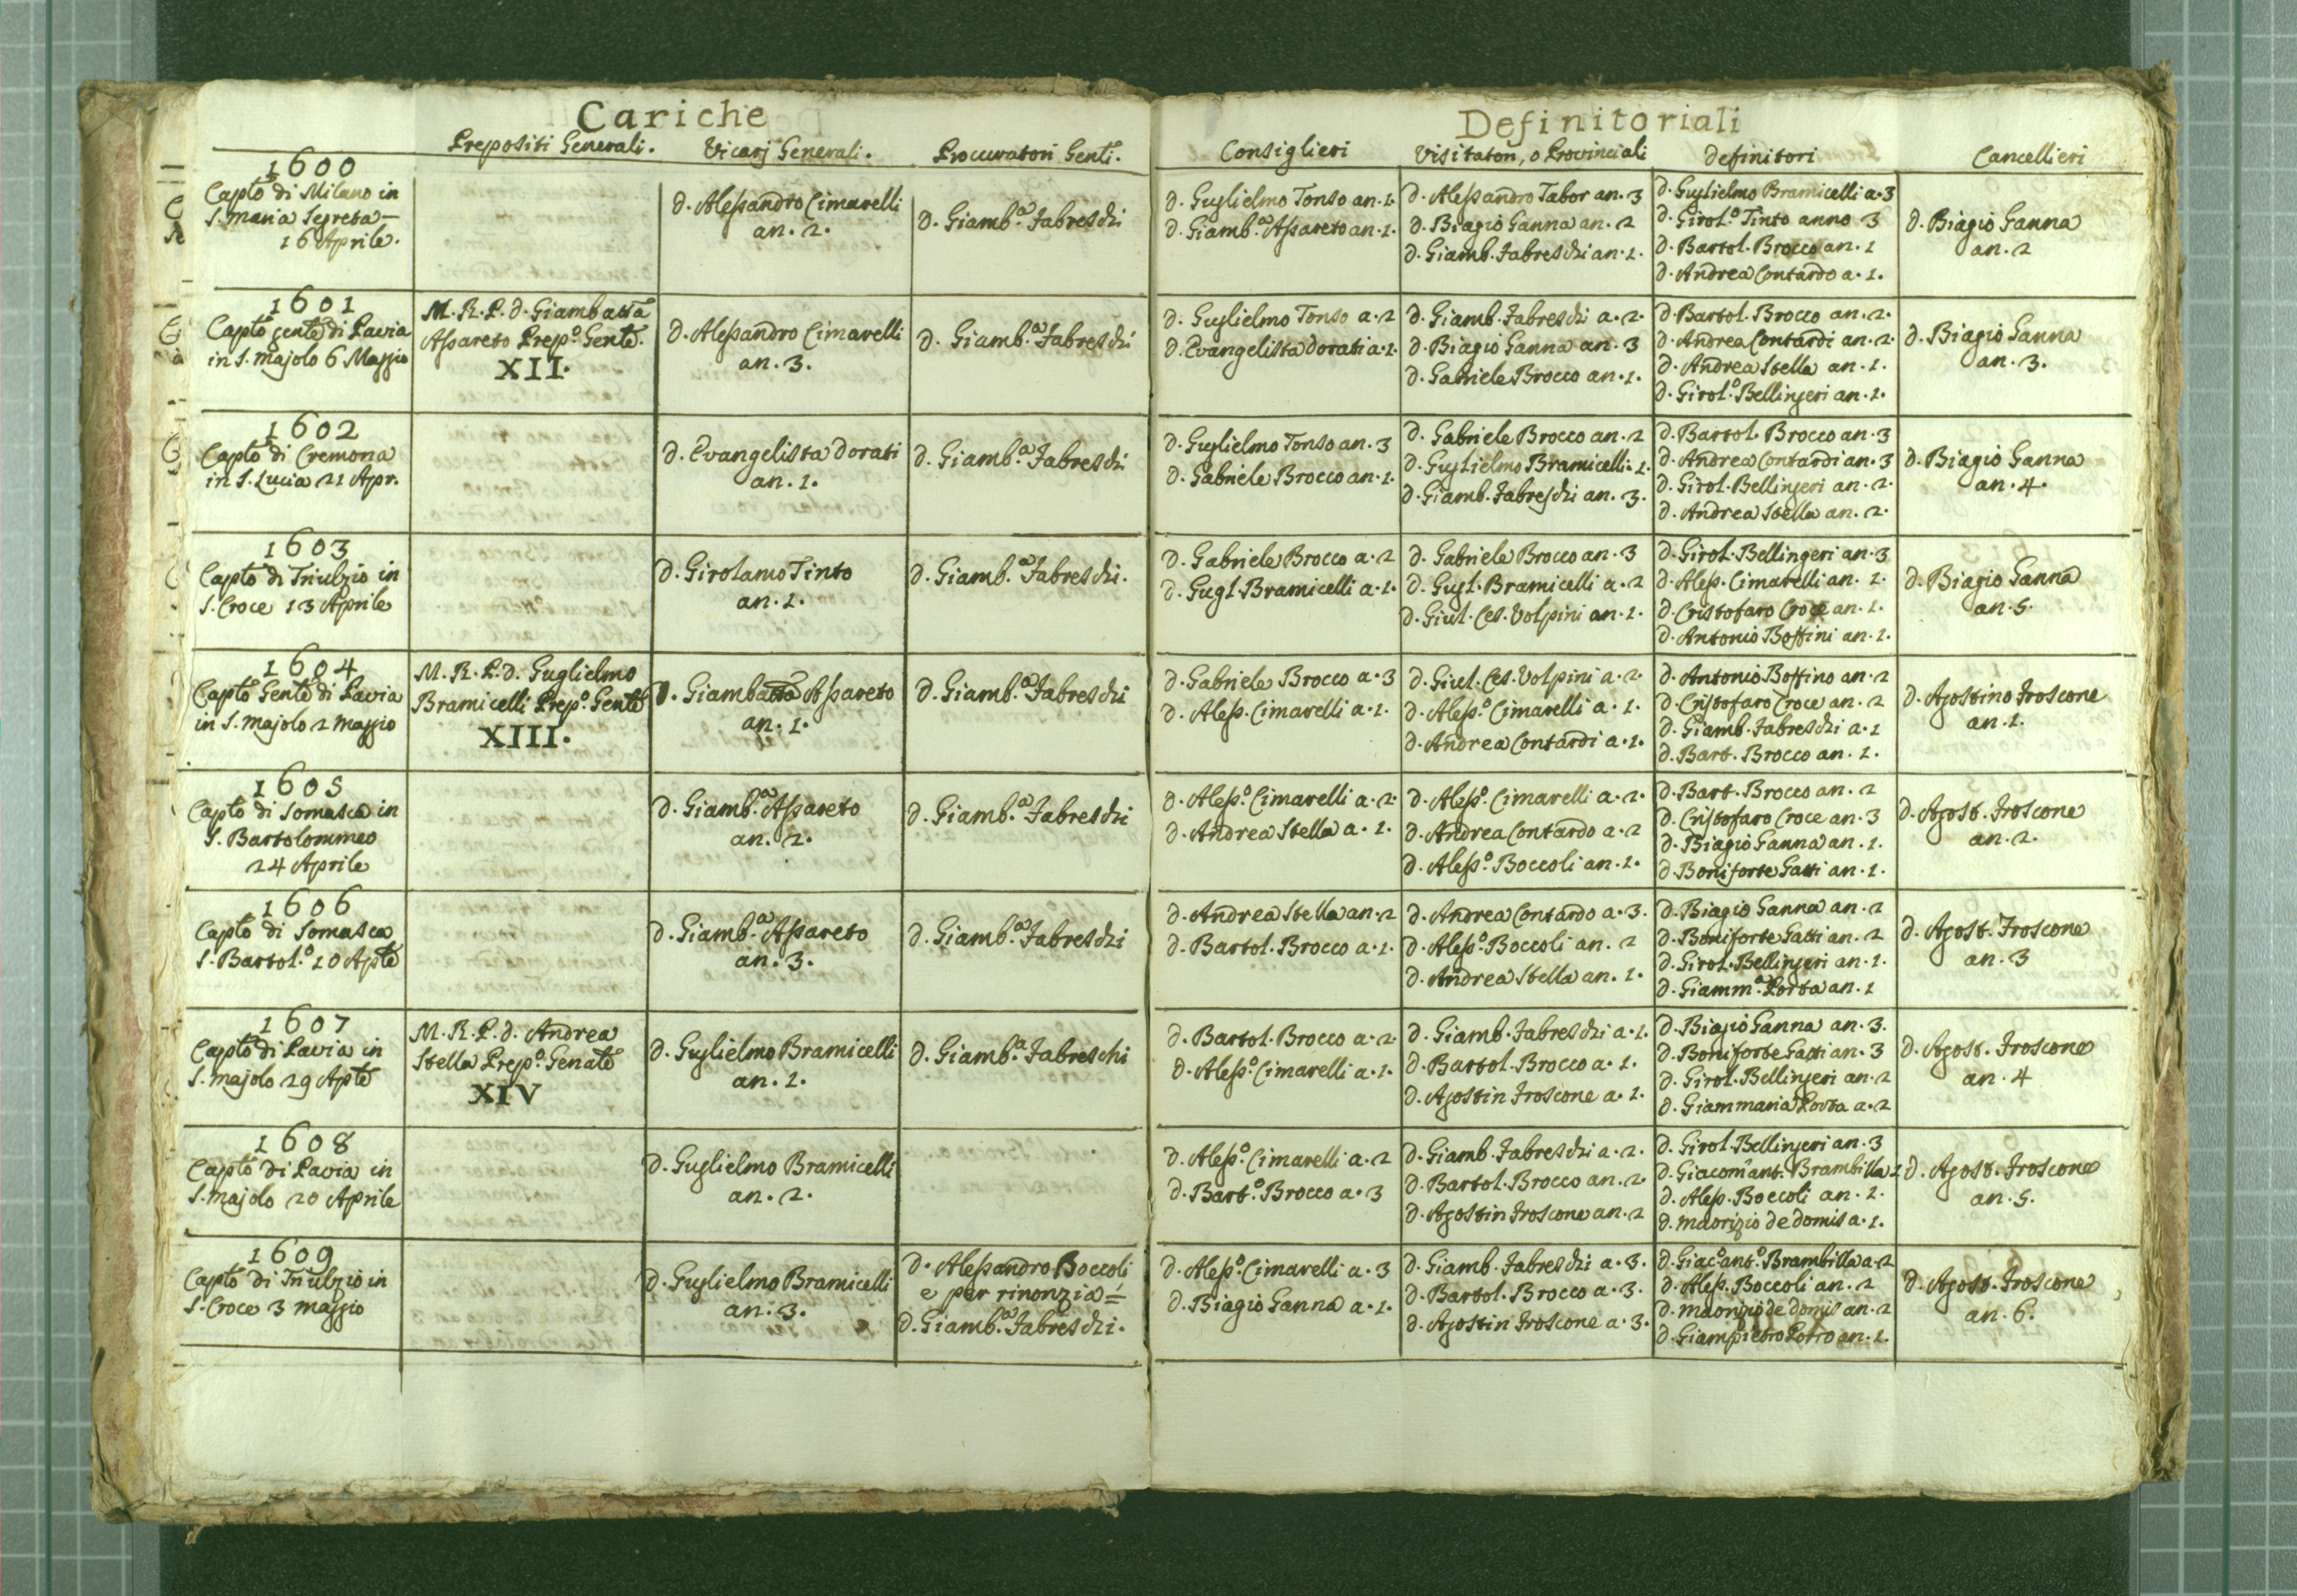 Cariche
Definitoriali
Prepositi Generali.
Vicarj Generali.
Procuratori Genli.
Consiglieri
Visitatori, o Provinciali
Definitori
Cancellieri
1600
Capto di Milano in
S. Maria Segreta
16 Aprile.
d. Alessandro Cimarelli
an. 2.
d. Giamb.a Fabreschi
d. Guglielmo Tonso an. 1.
d. Giamb.a Assareto an. 1.
d. Alessandro Tabor an. 3
d. Biagio Ganna an. 2
d. Giamb. Fabreschi an. 1.
d. Guglielmo Bramicelli a. 3
d. Girol.o Tinto anno 3
d. Bartol. Brocco an. 1
d. Andrea Contardo a. 1.
d. Biagio Ganna
an. 2
1601
Capto gentè di Pavia
in S. Majolo 6 Maggio
M. R. P. d. Giambatta
Assareto Prep.o Gentè.
XII.
d. Alessandro Cimarelli
an. 3.
d. Giamb.a Fabreschi
d. Guglielmo Tonso a. 2
d. Evangelista Dorati a. 1.
d. Giamb. Fabreschi a. 2.
d. Biagio Ganna an. 3
d. Gabriele Brocco an. 1.
d. Bartol. Brocco an. 2.
d. Andrea Contardi an. 2.
d. Andrea Stella an. 1.
d. Girol.o Bellingeri an. 1.
d. Biagio Ganna
an. 3.
1602
Capto di Cremona
in S. Lucia 21 Apr.
d. Evangelista Dorati
an. 1.
d. Giamb.a Fabreschi
d. Guglielmo Tonso an. 3
d. Gabriele Brocco an. 1.
d. Gabriele Brocco an. 2
d. Guglielmo Bramicelli. 1.
d. Giamb. Fabreschi an. 3.
d. Bartol. Brocco an. 3
d. Andrea Contardi an. 3
d. Girol. Bellingeri an. 2.
d. Andrea Stella an. 2.
d. Biagio Ganna
an. 4.
1603
Capto di Triulzio in
S. Croce 13 Aprile
d. Girolamo Tinto
an. 1.
d. Giamb.a Fabreschi.
d. Gabriele Brocco a. 2
d. Gugl. Bramicelli a. 1.
d. Gabriele Brocco an. 3
d. Gugl. Bramicelli a. 2
d. Giul. Ces. Volpini an. 1.
d. Girol. Bellingeri an. 3
d. Aless. Cimarelli an. 1.
d. Cristofaro Croce an. 1.
d. Antonio Boffini an. 1.
d. Biagio Ganna
an. 5.
1604
Capto Gentè di Pavia
in S. Majolo 2 Maggio
M. R. P. d. Guglielmo
Bramicelli Prep.o Gentè
XIII.
d. Giambatta Assareto
an. 1.
d. Giamb.a Fabreschi
d. Gabriele Brocco a. 3
d. Aless. Cimarelli a. 1.
d. Giul. Ces. Volpini a. 2.
d. Aless.o Cimarelli a. 1.
d. Andrea Contardi a. 1.
d. Antonio Boffino an. 2
d. Cristofaro Croce an. 2
d. Giamb. Fabreschi a. 1
d. Bart. Brocco an. 1.
d. Agostino Froscone
an. 1.
1605
Capto di Somasca in
S. Bartolommeo
24 Aprile
d. Giamb.a Assareto
an. 2.
d. Giamb.a Fabreschi
d. Aless.o Cimarelli a. 2.
d. Andrea Stella a. 1.
d. Aless.o Cimarelli a. 2.
d. Andrea Contardo a. 2
d. Aless.o Boccoli an. 1.
d. Bart. Brocco an. 2
d. Cristofaro Croce an. 3
d. Biagio Ganna an. 1.
d. Boniforte Gatti an. 1.
d. Agost. Froscone
an. 2.
1606
Capto di Somasca
S. Bartol.o 10 Aple
d. Giamb.a Assareto
an. 3.
d. Giamb.a Fabreschi
d. Andrea Stella an. 2
d. Bartol. Brocco a. 1.
d. Andrea Contardo a. 3.
d. Aless.o Boccoli an. 2
d. Andrea Stella an. 1.
d. Biagio Ganna an. 2
d. Boniforte Gatti an. 2
d. Girol. Bellingeri an. 1.
d. Giamm.a Porta an. 1
d. Agost. Froscone
an. 3
1607
Capto di Pavia in
S. Majolo 29 Aple
M. R. P. d. Andrea
Stella Prep.o Genale
XIV
d. Guglielmo Bramicelli
an. 1.
d. Giamb.a Fabreschi
d. Bartol. Brocco a. 2.
d. Aless.o Cimarelli a. 1.
d. Giamb. Fabreschi a. 1.
d. Bartol. Brocco a. 1.
d. Agostin Froscone a. 1.
d. Biagio Ganna an. 3.
d. Boniforte Gatti an. 3
d. Girol. Bellingeri an. 2
d. Giammaria Porta a. 2
d. Agost. Froscone
an. 4
1608
Capto di Pavia in
S. Majolo 20 Aprile
d. Guglielmo Bramicelli
an. 2.
d. Aless.o Cimarelli a. 2
d. Bart.o Brocco a. 3
d. Giamb. Fabreschi a. 2.
d. Bartol. Brocco an. 2.
d. Agostin Froscone an. 2
d. Girol. Bellingeri an. 3
d. Giacom'ant. Brambilla 1
d. Aless. Boccoli an. 1.
d. Maorizio de Domis a. 1.
d. Agost. Froscone
an. 5.
1609
Capto di Triulzio in
S. Croce 3 Maggio
d. Guglielmo Bramicelli
an. 3.
d. Alessandro Boccoli
e per rinonzia =
d. Giamb.a Fabreschi.
d. Aless.o Cimarelli a. 3
d. Biagio Ganna a. 1.
d. Giamb. Fabreschi a. 3.
d. Bartol. Brocco a. 3.
d. Agostin Froscone a. 3.
d. Giac.o ant.o Brambilla a. 2
d. Aless. Boccoli an. 2
d. Maorizio de Domis an. 2
d. Giampietro Porro an. 1.
d. Agost. Froscone
an. 6.